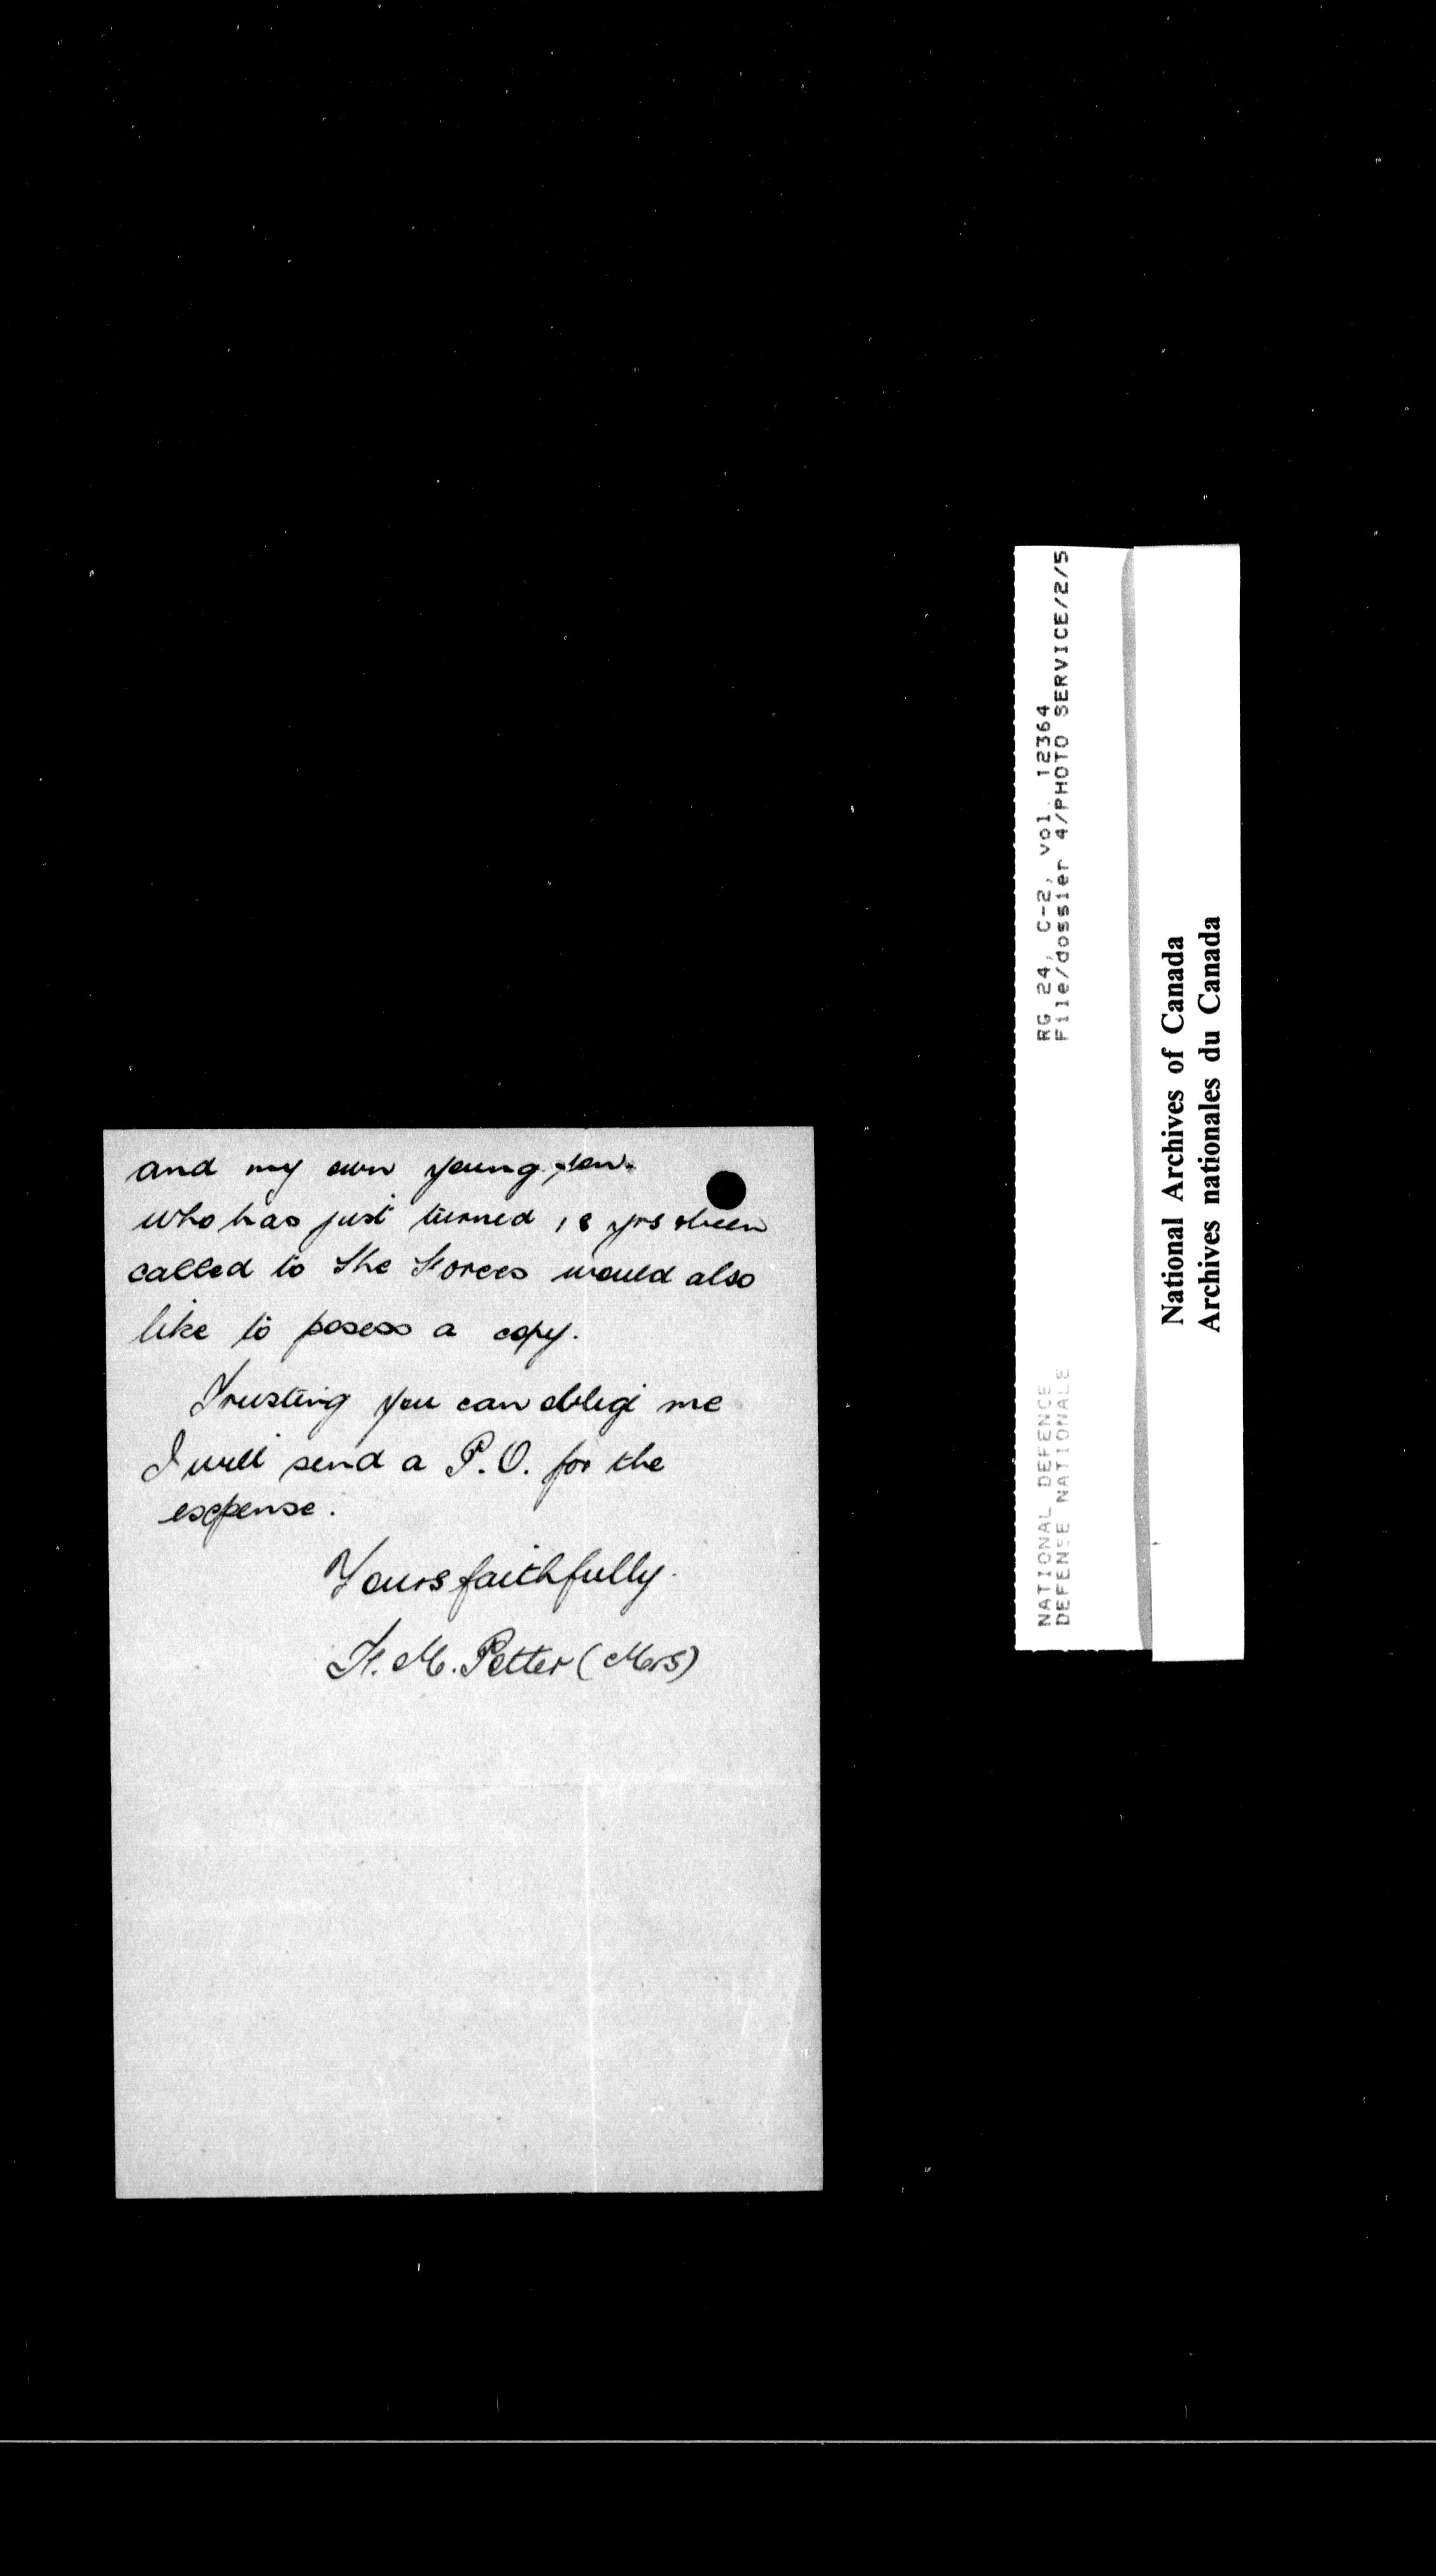 and my own young son.
who has just turned 18 yrs & been
called to the Forces would also
like to posess a copy.
Trusting you can oblige me
I will send a P.O. for the
expense.
Yours faithfully.
F. M. Petter (Mrs)
RG 24, C-2, vol. 12364
File/dossier 4/PHOTO SERVICE/2/5
NATIONAL DEFENCE
DEFENSE NATIONALE
National Archives of Canada
Archives nationales du Canada